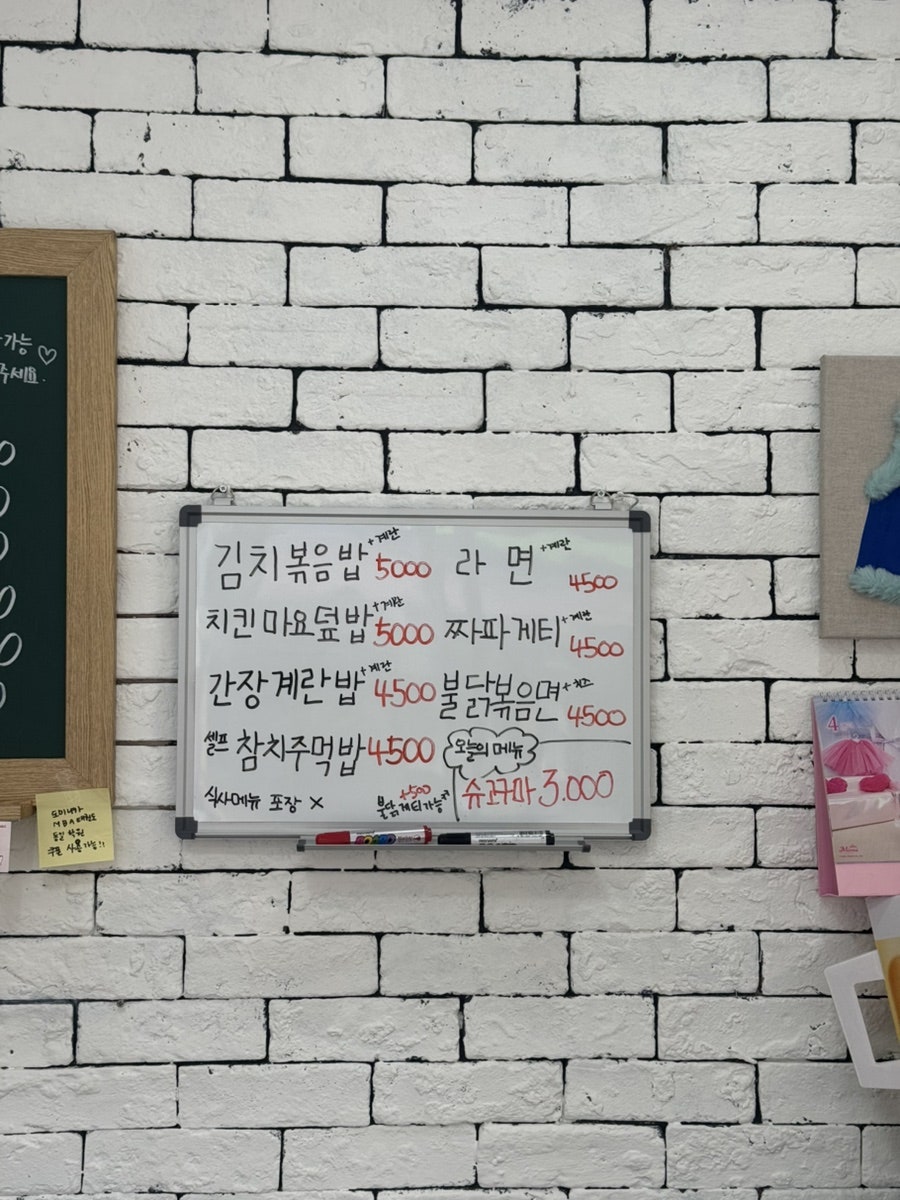 가능 ♡
주세요.
김치볶음밥 +계란 5000
라 면 +계란 4500
치킨마요덮밥 +계란 5000
짜파게티 +계란 4500
간장계란밥 +계란 4500
불닭볶음면 +치즈 4500
셀프 참치주먹밥 4500
오늘의 메뉴
슈크마 3.000
식사메뉴 포장 X
+500
불닭게티가능
도미니카
MBA
동일 학원
쿠폰 사용가능!!
4